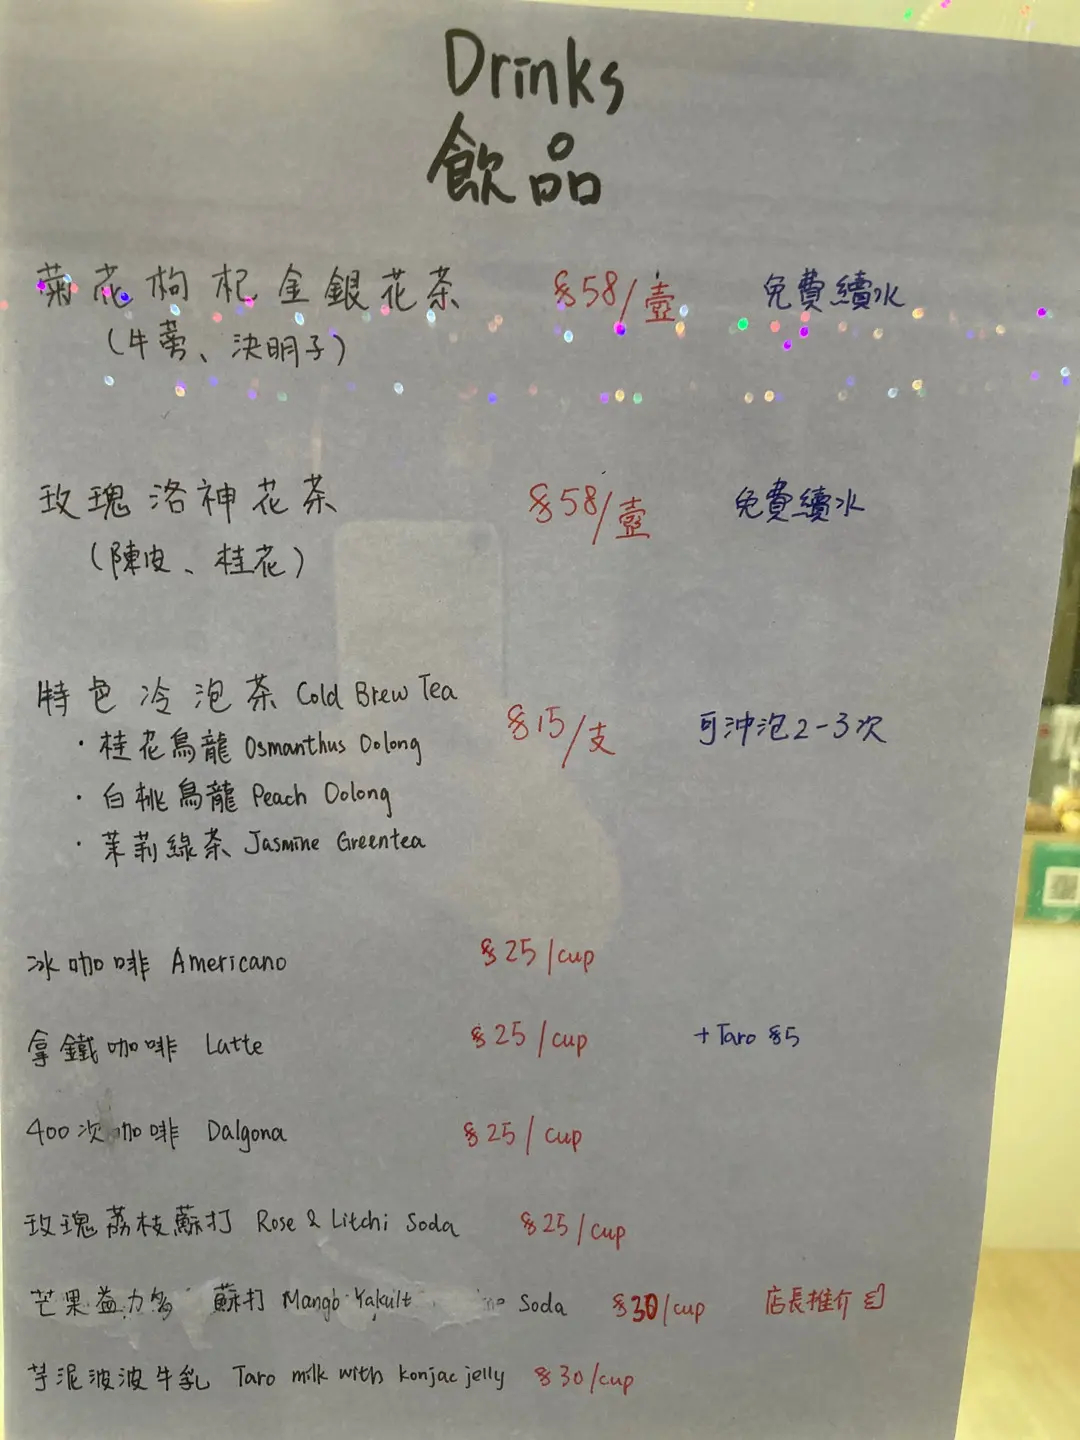 Drinks
飲品
菊花枸杞金銀花茶 $58/壺 免費續水
(牛蒡、決明子)
玫瑰洛神花茶 $58/壺 免費續水
(陳皮、桂花)
特色冷泡茶 Cold Brew Tea $15/支 可沖泡2-3次
· 桂花烏龍 Osmanthus Oolong
· 白桃烏龍 Peach Oolong
· 茉莉綠茶 Jasmine Greentea
冰咖啡 Americano $25/cup
拿鐵咖啡 Latte $25/cup +Taro $5
400次咖啡 Dalgona $25/cup
玫瑰荔枝蘇打 Rose & Litchi Soda $25/cup
芒果益力多 蘇打 Mango Yakult Soda $30/cup 店長推介
芋泥波波牛乳 Taro milk with konjac jelly $30/cup